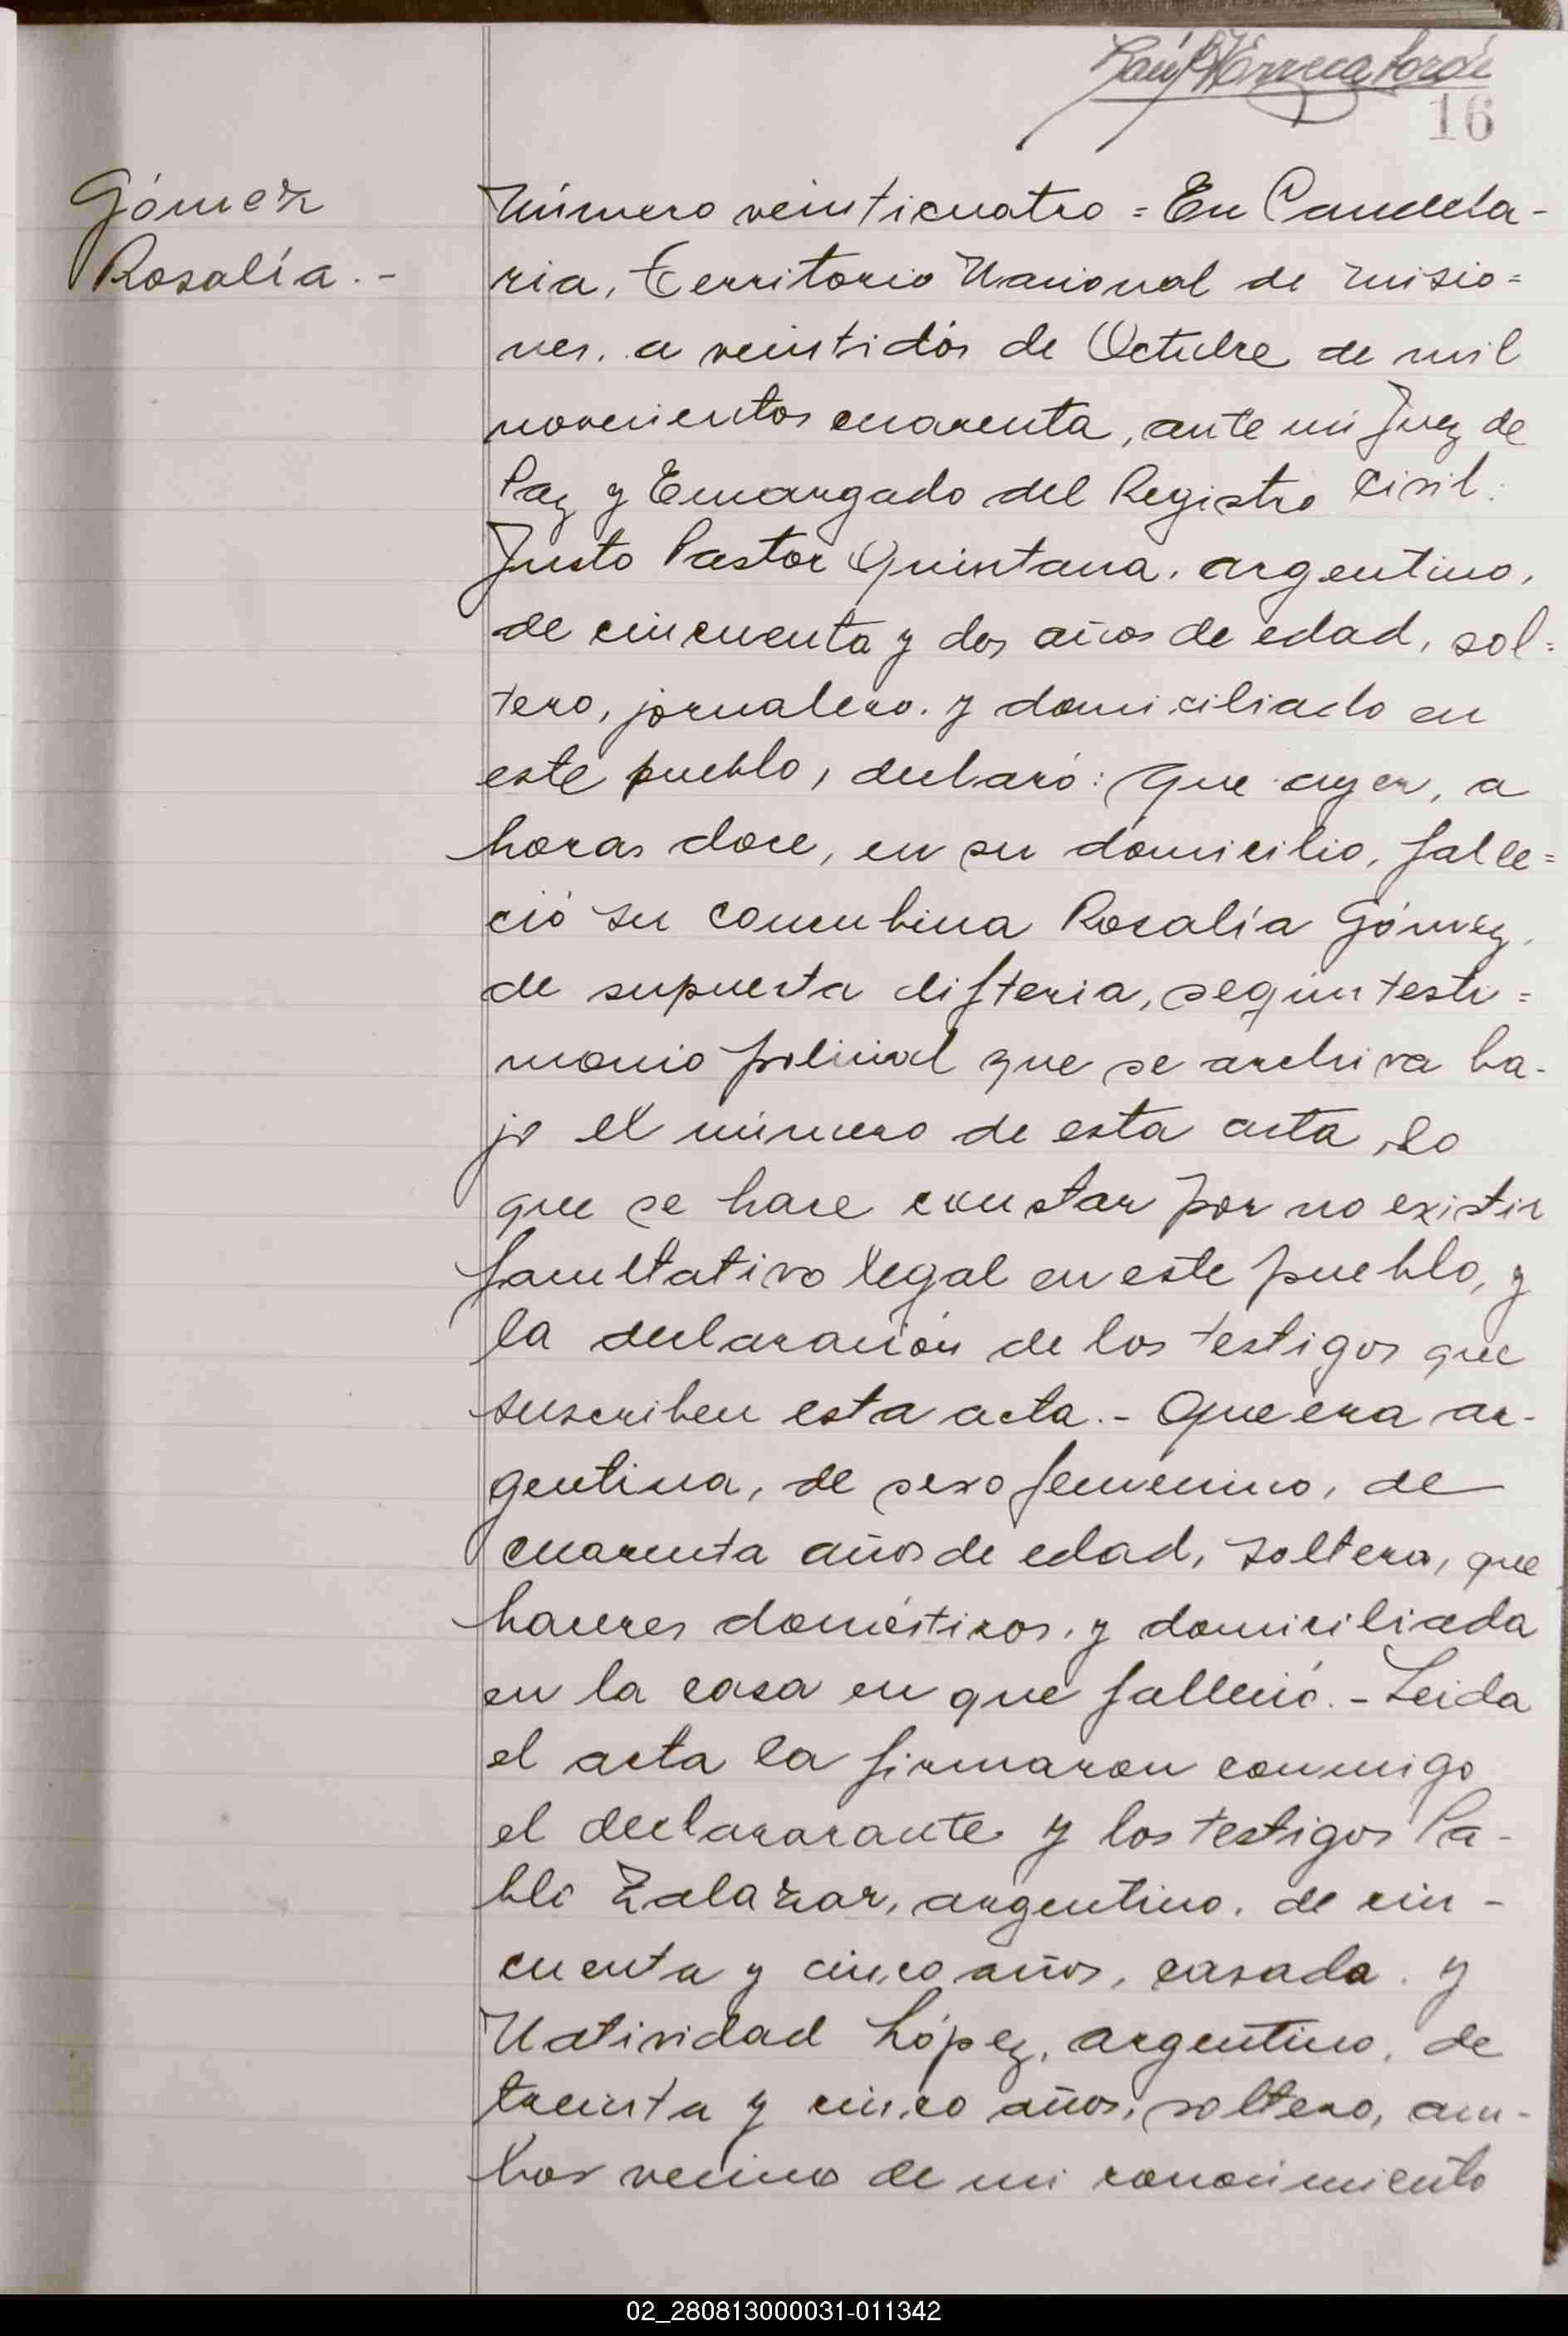 16
Gómez
Rosalía.-
Número veinticuatro = En Candela-
ria, Territorio Nacional de Misio=
nes, a veintidós de Octubre de mil
novecientos cuarenta, ante mi Juez de
Paz y Encargado del Registro Civil:
Justo Pastor Quintana, argentino,
de cincuenta y dos años de edad, sol=
tero, jornalero, y domiciliado en
este pueblo, declaró: Que ayer, a
horas doce, en su domicilio, falle=
ció su concubina Rosalía Gómez,
de supuesta difteria, según testi=
monio policial que se archiva ba-
jo el número de esta acta, lo
que se hace constar por no existir
facultativo legal en este pueblo, y
la declaración de los testigos que
suscriben esta acta.- Que era ar-
gentina, de sexo femenino, de
cuarenta años de edad, soltera, que
haceres domésticos, y domiciliada
en la casa en que falleció.- Leida
el acta la firmaron conmigo
el declararante y los testigos Pa-
blo Zalazar, argentino, de cin-
cuenta y cinco años, casado, y
Natividad López, argentino, de
treinta y cinco años, soltero, am-
bos vecinos de mi conocimiento
02_280813000031-011342